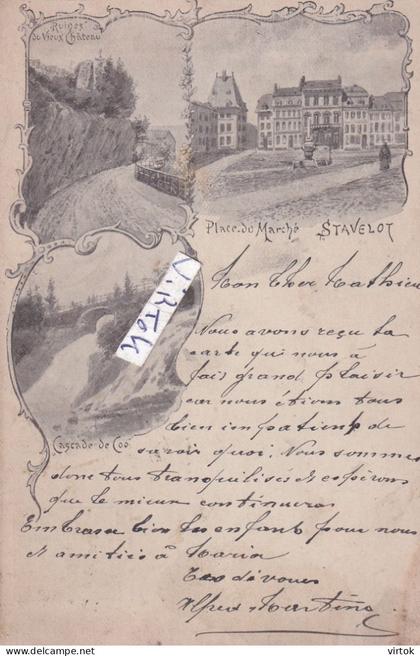 Ruines
du Vieux Château
Place du Marché STAVELOT
V.RTOK
Cascade de Coo
Mon Cher Mathieu
Nous avons reçu ta
carte qui nous à
fais grand plaisir
car nous étions tous
bien impatient de
savoir quoi. Nous sommes
donc tous tranquilisés et espérons
que le mieux continuera
Embrasse bien les enfant pour nous
et amitiés à Maria
Ton dévoué
Alfred Martino
delcampe.net
virtok